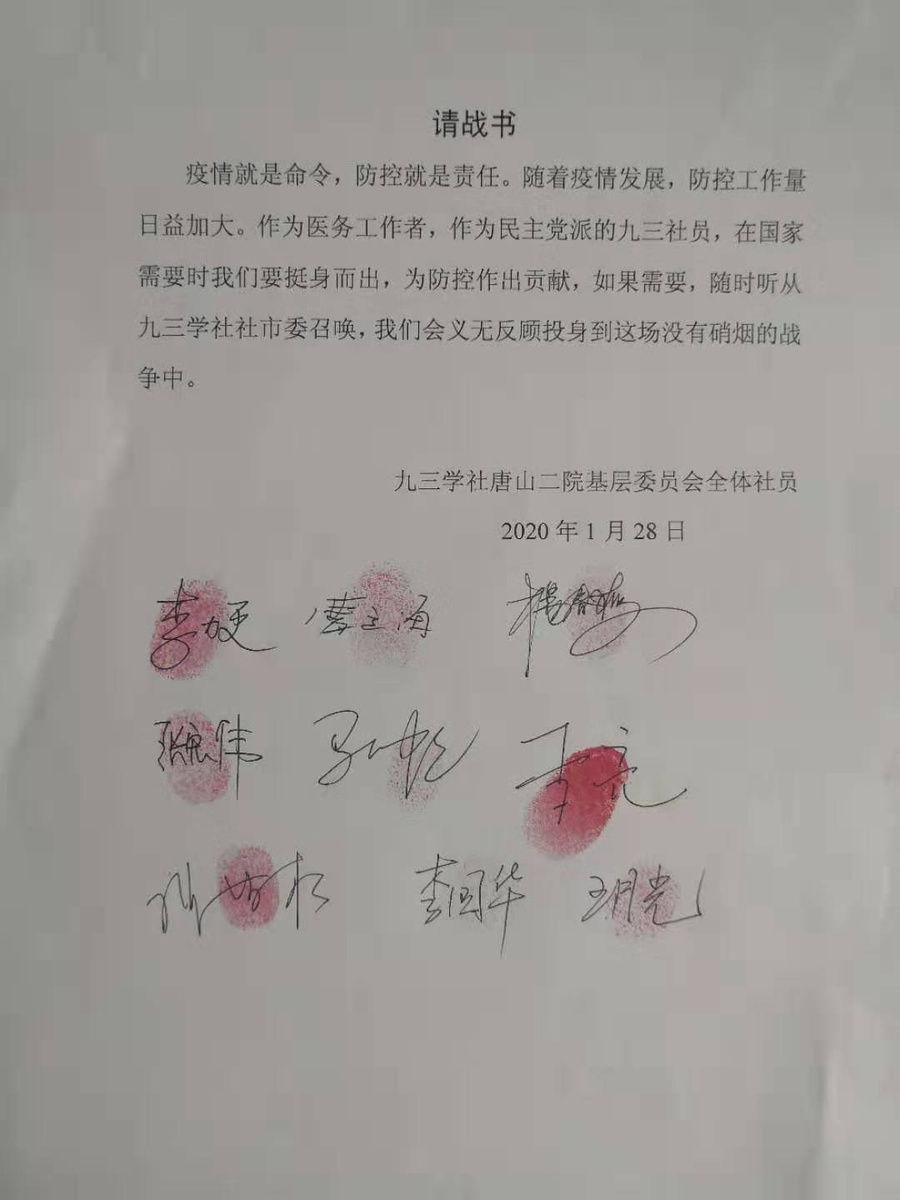 请战书
疫情就是命令，防控就是责任。随着疫情发展，防控工作量
日益加大。作为医务工作者，作为民主党派的九三社员，在国家
需要时我们要挺身而出，为防控作出贡献，如果需要，随时听从
九三学社社市委召唤，我们会义无反顾投身到这场没有硝烟的战
争中。
九三学社唐山二院基层委员会全体社员
2020 年 1 月 28 日
曹立海
李亮
李国华 王月光